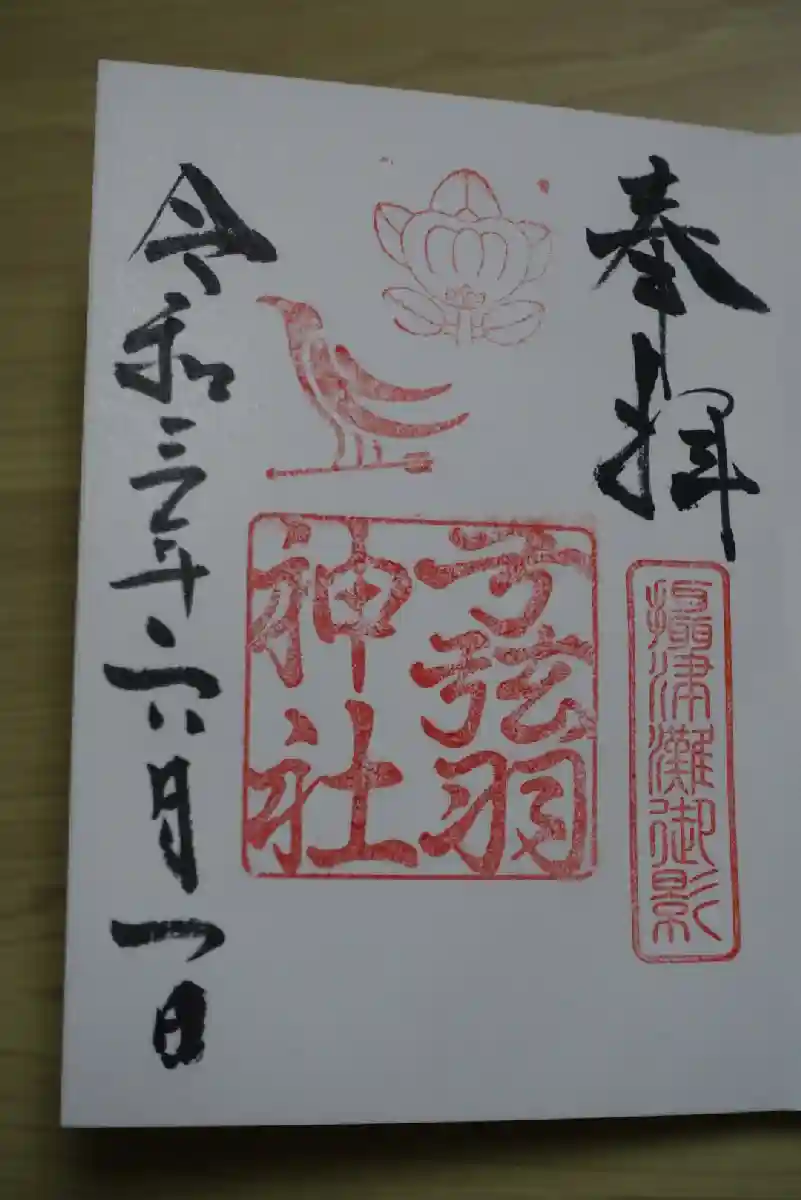 奉拝
摂津灘御影
弓弦羽
神社
令和三年六月一日